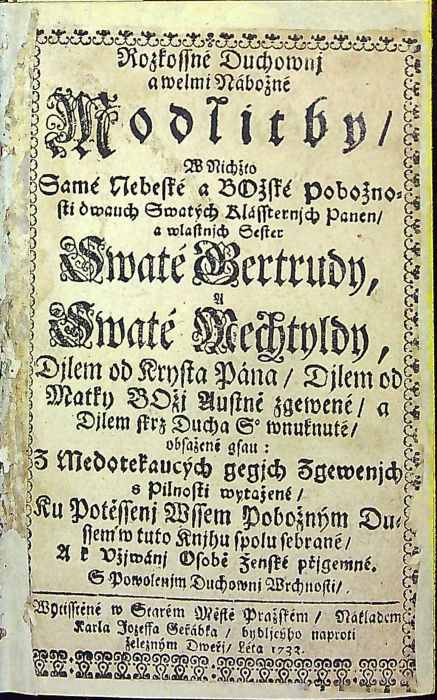 Rozkossné Duchownj
a welmi Nábožné
Modlitby/
W Nichžto
Samé Nebeské a BOžské pobožno-
sti dwauch Swatých Klásster​njch Panen/
a wlastnjch Sester
Swaté Gertrudy,
A
Swaté Mechtyldy,
Djlem od Krysta Pána/ Djlem od
Matky BOžj Austně zgewené/ a
Djlem skrz Ducha S° wnuknuté/
obsažené gsau:
Z Medotekaucých gegjch Zgewenjch
s Pilnosti wytažené/
Ku Potěssenj Wssem Pobožným Du-
ssem w tuto Knjhu spolu sebrané/
A k Vžjwánj Osobě ženské přjgemné.
S Powolenjm Duchownj Wrchnosti/.
Wytisstěné w Starém Městě Pražském/ Nákladem
Karla Jozeffa Geřábka/ bydlicýho naproti
železným Dweřj/ Léta 1733.